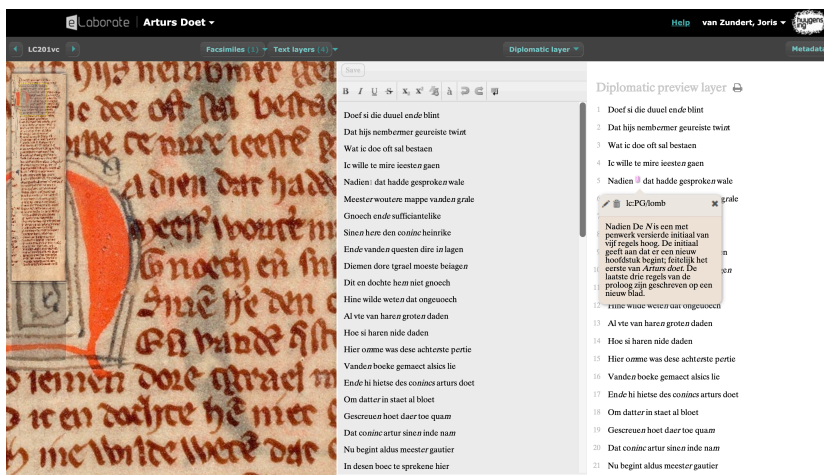 eLaborate Arturs Doet
Help van Zundert, Joris huygens ing
LC201vc Facsimiles (1) Text layers (4) Diplomatic layer Metadata
Save
B I U S
Doef si die duuel ende blint
Dat hijs nembermer geureiste twint
Wat ic doe oft sal bestaen
Ic wille te mire ieesten gaen
Nadien dat hadde gesproken wale
Meester woutere mappe vanden grale
Gnoech ende sufficiantelike
Sinen here den coninc heinrike
Ende vanden questen dire in lagen
Diemen dore tgrael moeste beiagen
Dit en dochte hem niet gnoech
Hine wilde weten dat ongeuoech
Al vte van haren groten daden
Hoe si haren nide daden
Hier omme was dese achterste pertie
Vanden boeke gemaect alsics lie
Ende hi hietse des conincs arturs doet
Om datter in staet al bloet
Gescreuen hoet daer toe quam
Dat coninc artur sinen inde nam
Nu begint aldus meester gautier
In desen boec te sprekene hier
Diplomatic preview layer
1 Doef si die duuel ende blint
2 Dat hijs nembermer geureiste twint
3 Wat ic doe oft sal bestaen
4 Ic wille te mire ieesten gaen
5 Nadien dat hadde gesproken wale
grale
lc:PG/lomb
Nadien De N is een met
penwerk versierde initiaal van
vijf regels hoog. De initiaal
geeft aan dat er een nieuw
hoofdstuk begint; feitelijk het
eerste van Arturs doet. De
laatste drie regels van de
proloog zijn geschreven op een
nieuw blad.
12 Hine wilde weten dat ongeuoech
13 Al vte van haren groten daden
14 Hoe si haren nide daden
15 Hier omme was dese achterste pertie
16 Vanden boeke gemaect alsics lie
17 Ende hi hietse des conincs arturs doet
18 Om datter in staet al bloet
19 Gescreuen hoet daer toe quam
20 Dat coninc artur sinen inde nam
21 Nu begint aldus meester gautier